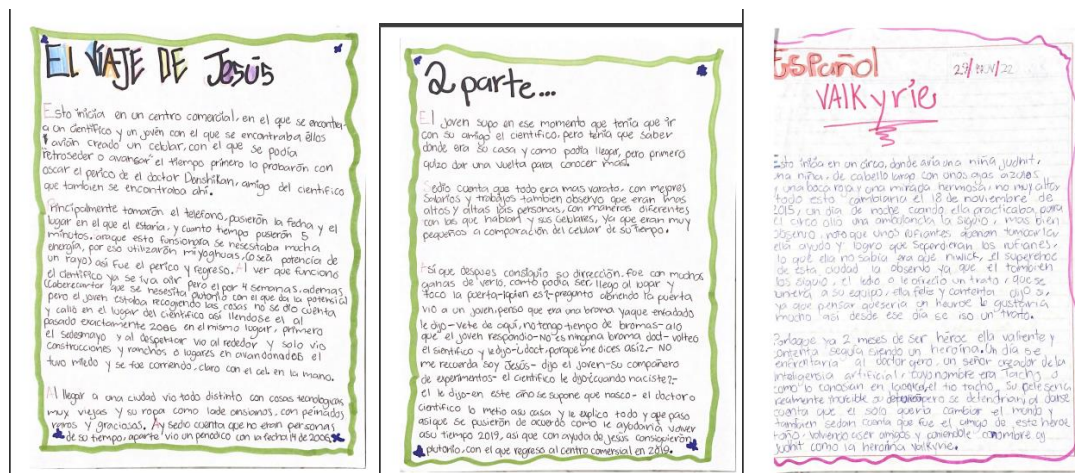 EL VIAJE DE Jesús
Esto inicia en un centro comercial, en el que se encontra-
a un científico y un joven con el que se encontraba éllos
avión creado un celular, con el que se podía
retroseder o avansar el tiempo primero lo probarón con
oscar el perico de el doctor Denshikan, amigo del científico
que tambien se encontraba ahí.
Principalmente tomarón el teléfono, pusierón la fecha y el
lugar en el que el estaria, y cuanto tiempo pusierón 5
minutos, para que esto funcionara se nesesitaba mucha
energia, por eso utilizarón (o sea potencia de
un rayo) así fue el perico y regreso. Al ver que funciono
el científico ya se iva air pero el por 4 semanas, además
que se nesesita plutonio con el que da la potencia
pero el joven estaba recogendo las cosas no se dio cuenta
y callo en el lugar del científico así llendose el al
pasado exactamente 2006 en el mismo lugar, primero
el sedesmayo y al despertar vio al rededor y solo vio
construcciones y ranchos o lugares en avandonados el
tuvo miedo y se fue corriendo, claro con el cel en la mano.
Al llegar a una ciudad vio todo distinto con cosas tecnologicas
muy viejas y su ropa como lade ansianos, con peinados
raros y graciosos. Ay sedio cuenta que no eran personas
de su tiempo, aparte vio un periodico con la fecha 14 de 2006.
2 parte...
El joven supo en ese momento que tenía que ir
con su amigo el científico, pero tenía que saber
donde era su casa y como podía llegar, pero primero
quizo dar una vuelta para conocer mas.
Sedio cuenta que todo era mas varato, con mejores
salarios y trabajos tambien observo que eran mas
altos y altas las personas, con maneras diferentes
con las que hablan y sus celulares, ya que eran muy
pequeños a comparación del celular de su tiempo.
Así que despues consiguio su dirección, fue con muchas
ganas de verlo, cantó podia ser, llego al lugar y
toco la puerta-¿quien es?-pregunto abriendo la puerta
vio a un joven, penso que era una broma yaque enfadado
le dijo-vete de aquí, no tengo tiempo de bromas-alo
que el joven respondio-No es ninguna broma doct- volteo
el sientifico y ledijo-¿doct, porque me dices asi?.- NO
me recuerda soy Jesús- dijo el joven-su compañero
de experimentos- el científico le dijo¿cuando naciste?-
el le dijo-en este año se supone que nasco- el doctor o
científico lo metio asu casa y le explico todo y que paso
asique se pusieron de acuerdo como le ayudaria volver
asu tiempo 2019, asi que con ayuda de Jesús consiguierón
plutonio, con el que regreso al centro comersial en 2019.
Español
29/NOV/22
VAlKyrie
Esto inicia en un circo, donde avia una niña judhit,
una niña, de cabello largo con unos ojos azules
y una boca roja y una mirada hermosa, no muy alto
todo esto cambiaria el 18 de noviembre de
2015, un dia de noche cuando ella practicaba para
el circo ollo una ambulancia la seguio y mas bien
observo, noto que unos rufianes querian
ella ayudo y logro que se los rufianes,
lo que ella no sabia era que nwick, el superheroe
de esta ciudad la observo ya que el tambien
los siguio, el ledio o le ofrecio un trato, que se
uniera a su equipo, ella feliz y contenta dijo si,
a que pensar queseria en heroe le gustaria
mucho asi desde ese dia se iso un trato.
ya 2 meses de ser héroe ella valiente y
contenta seguia siendo un heroína. Un dia se
enfrentaria al doctor gero, un señor creador de la
inteligensia artificial, cuyo nombre era Tacho o
como lo conosian en el tio tacho, su pelea seria
realmente increible su pero se detendrian al darse
cuenta que el solo queria cambiar el mundo y
tambien sedan cuenta que fue el amigo de este héroe
volviendo aser amigos y con nombre
judhit como la heroína valkyrie.